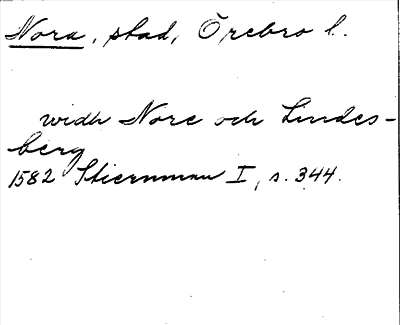 Nora, stad, Örebro l.
widh Nore och Lindes-
berg
1582 Stiernman I, s. 344.